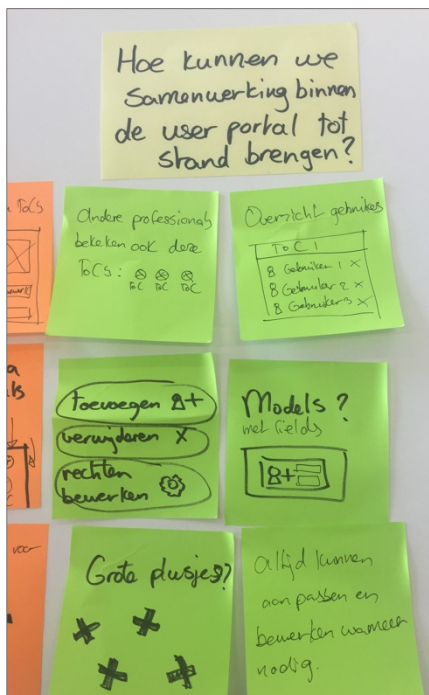 Hoe kunnen we
samenwerking binnen
de user portal tot
stand brengen?
ToCS
Andere professionals
bekeken ook deze
ToCs:
ToC ToC ToC
Overzicht gebruikers
ToC 1
Gebruiker 1 X
Gebruiker 2 X
Gebruiker 3 X
toevoegen +
verwijderen X
rechten
bewerken
Models?
met fields
+
Grote plusjes?
voor
Altijd kunnen
aanpassen en
bewerken wanneer
nodig.